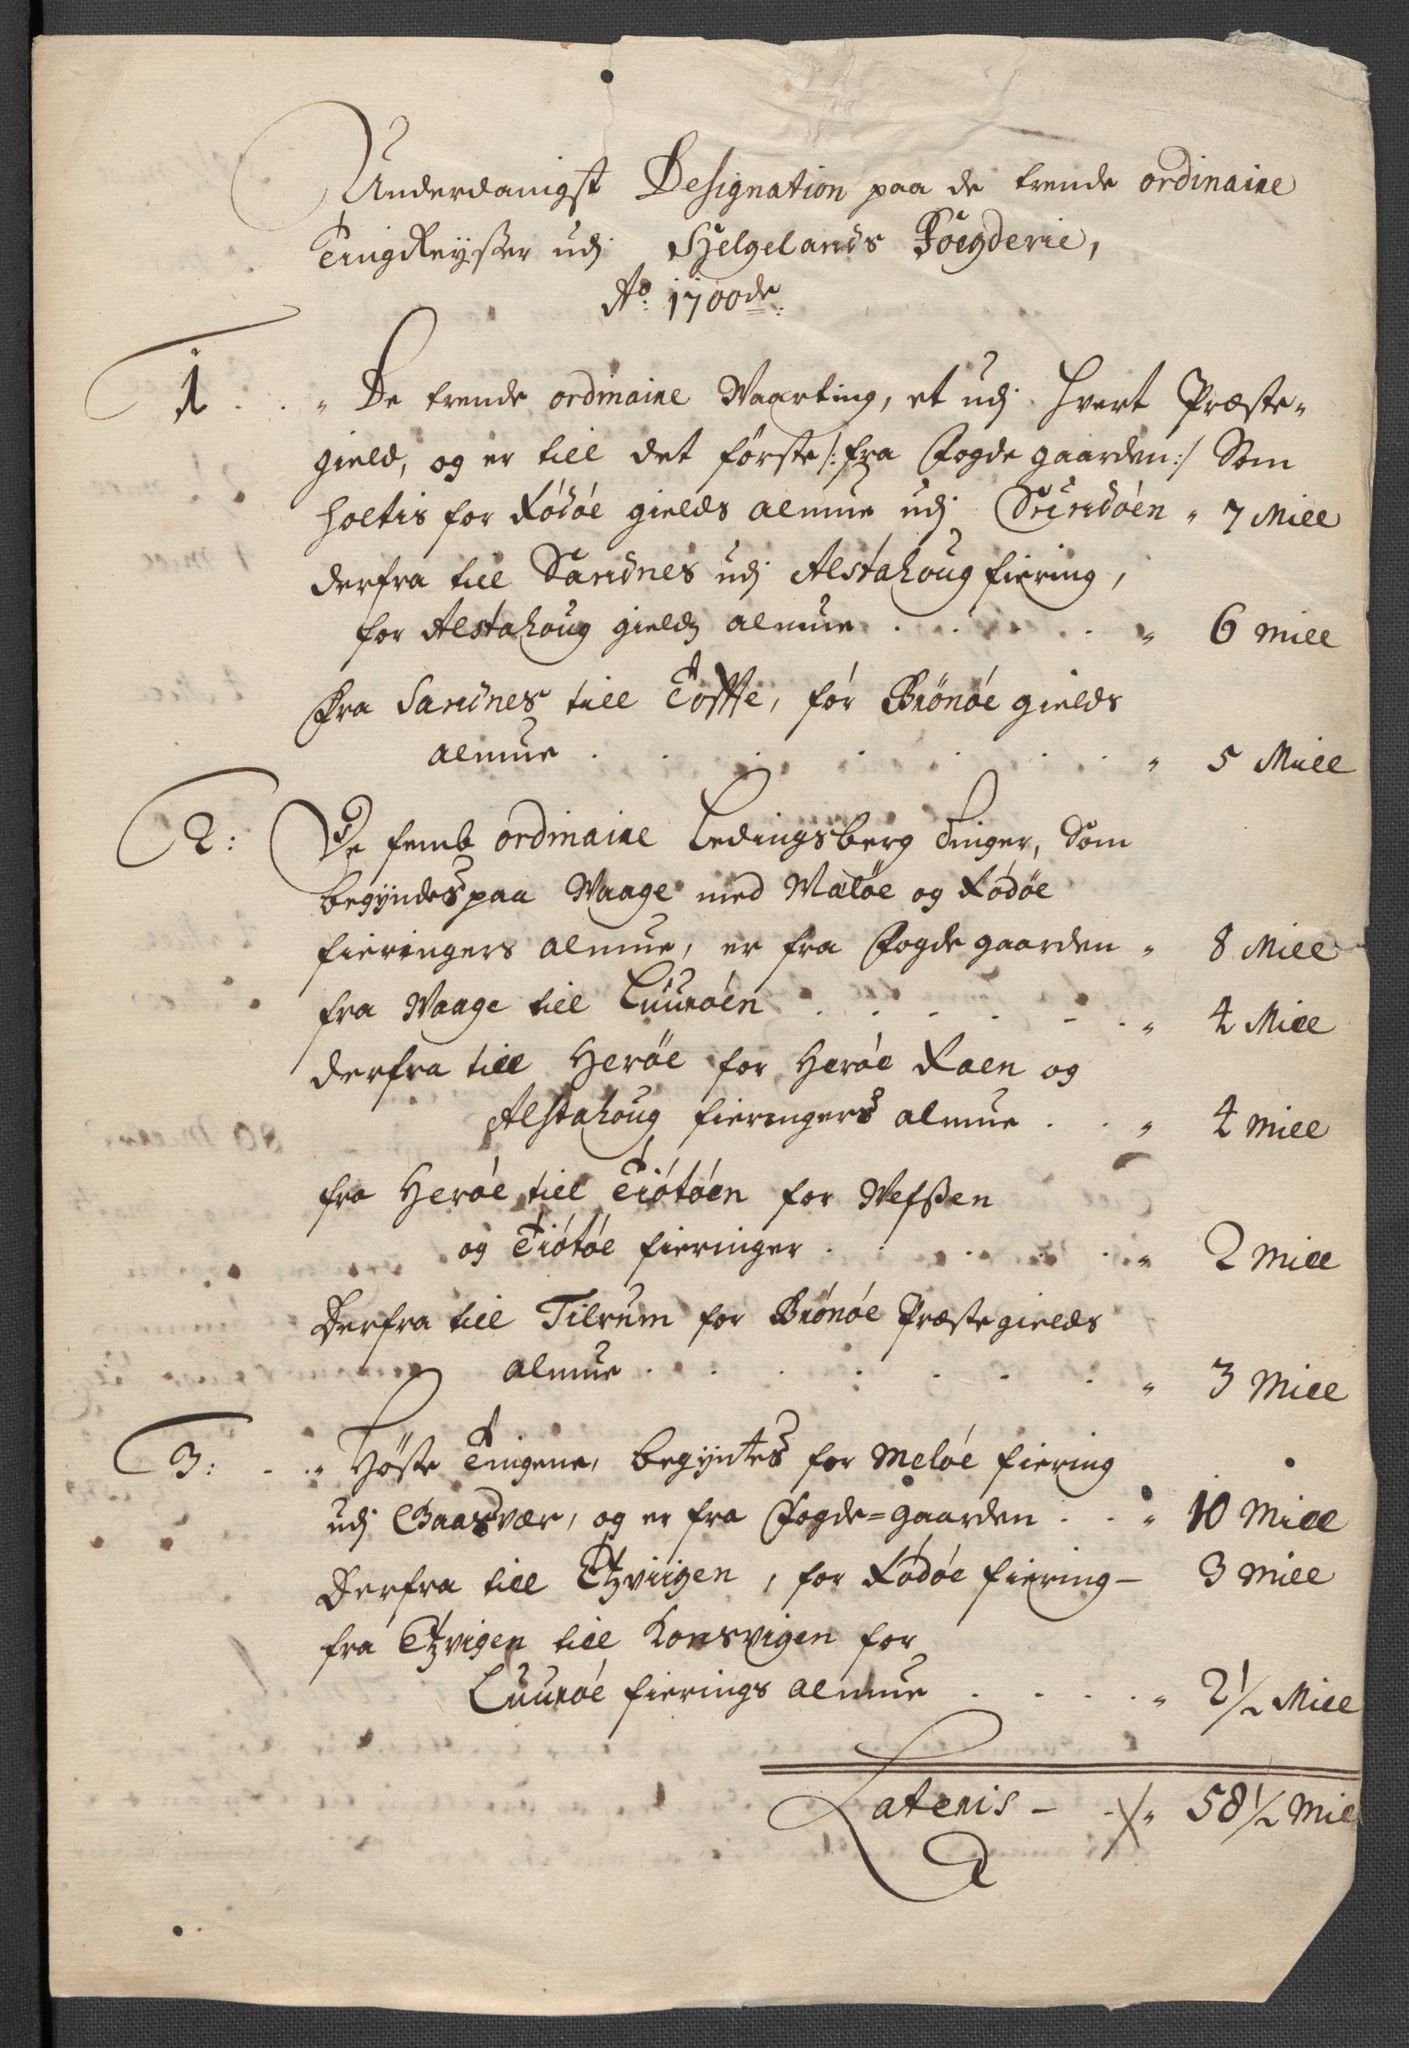 Underdanigst Designation paa de trende ordinaire
TingReyßer udj Helgelands Foegderie,
Ao: 1700de:
1 . . " De trende ordinaire Waarting, et udj hvert Præste-
gield, og er till det første /: fra Fogde gaarden :/ Som
holtis for Rödöe gields almue udj Selsöen " 7 Miel
derfra till Sandnes udj Alstahoug fiering,
for Alstahoug gields almue . . . . . " 6 Miell
Fra Sandnes till Toftte, for Brönöe gields
almue . . . . . . . " 5 Miell
2: De femb ordinaire Ledingsberg Tinger, Som
begyndes paa Waage med Melöe og Rödöe
fieringers almue, er fra Fogde gaarden " 8 Miell
fra Waage till Luuröen . . . . . " 4 Miell
derfra till Heröe for Heröe Raen og
Alstahoug fieringers almue . . " 4 Miell
fra Heröe till Tiötöen for Wefßen
og Tiötöe fieringer . . . . . " 2 Miell
Derfra till Tilrum for Brönöe Præstegields
almue . . . . . . . " 3 Miell
3: . . " Höste Tingene, begyntes for Melöe fiering
udj Gaasvær, og er fra Fogde=gaarden . . " 10 Miell
Derfra till Etzviigen, for Rödöe fiering — 3 Miell
fra Etzvigen till Konsvigen for
Luuröe fierings almue . . . . " 2 1/2 Miell
Lateris — " 58 1/2 Miel